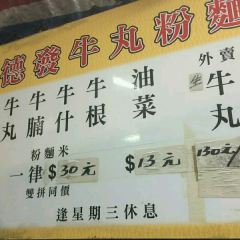 德發牛丸粉麵
牛丸
牛腩
牛什
牛根
油菜
粉麵米
一律$30元
雙拼同價
$13元
逢星期三休息
外賣
生牛丸
130元/